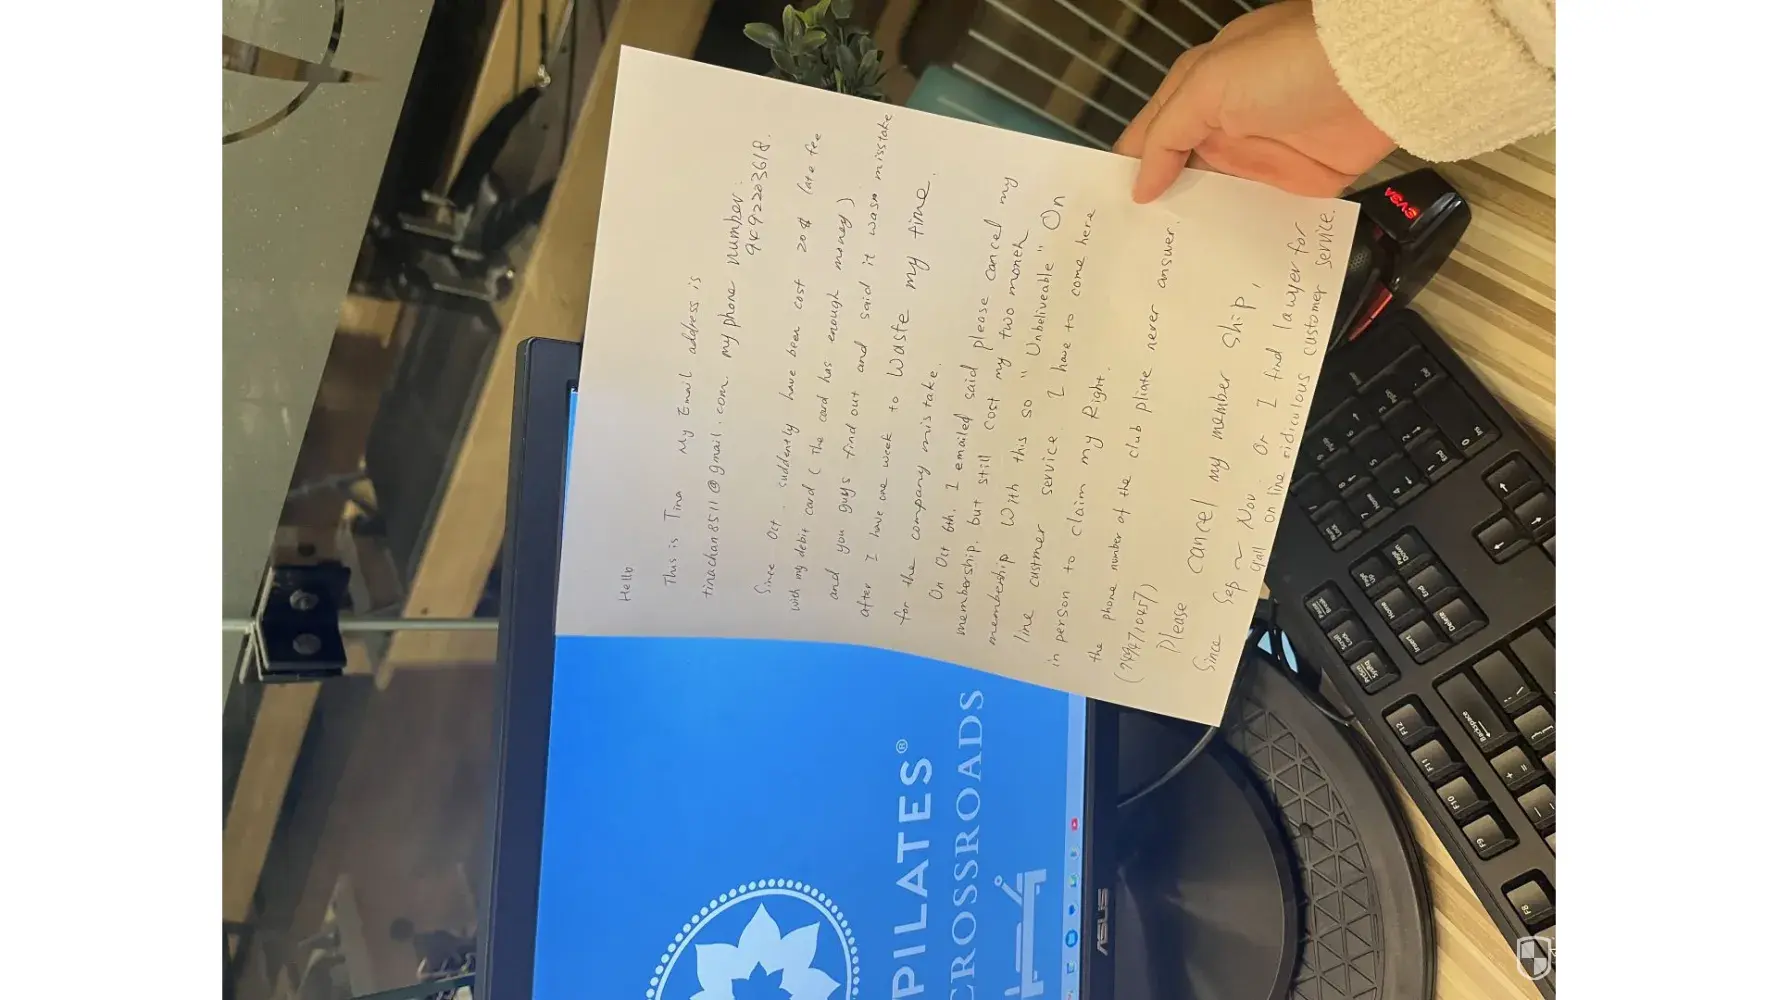 Hello
This is Tina My Email address is
tinachan8511@gmail.com. my phone number.
9492203618.
Since Oct. suddently have been cost 20$ late fee
with my debit card ( The card has enough money)
and you guys find out and said it was misstake
after I have one week to waste my time.
for the company mistake.
On Oct 6th, I emailed said please cancel my
membership, but still cost my two month
membership with this so "Unbeliveable" On
line customer service. I have to come here
in person to claim my Right.
the phone number of the club pliate never answer.
Please cancel my member ship,
Since Sep ~ Nov. Or I find lawyer for
on line ridiculous customer service.
PILATES®
CROSSROADS
ASUS
EVGA
Backspace
F12
F11
F10
F9
F8
Insert
Home
Page Up
Delete
End
Page Down
Num Lock